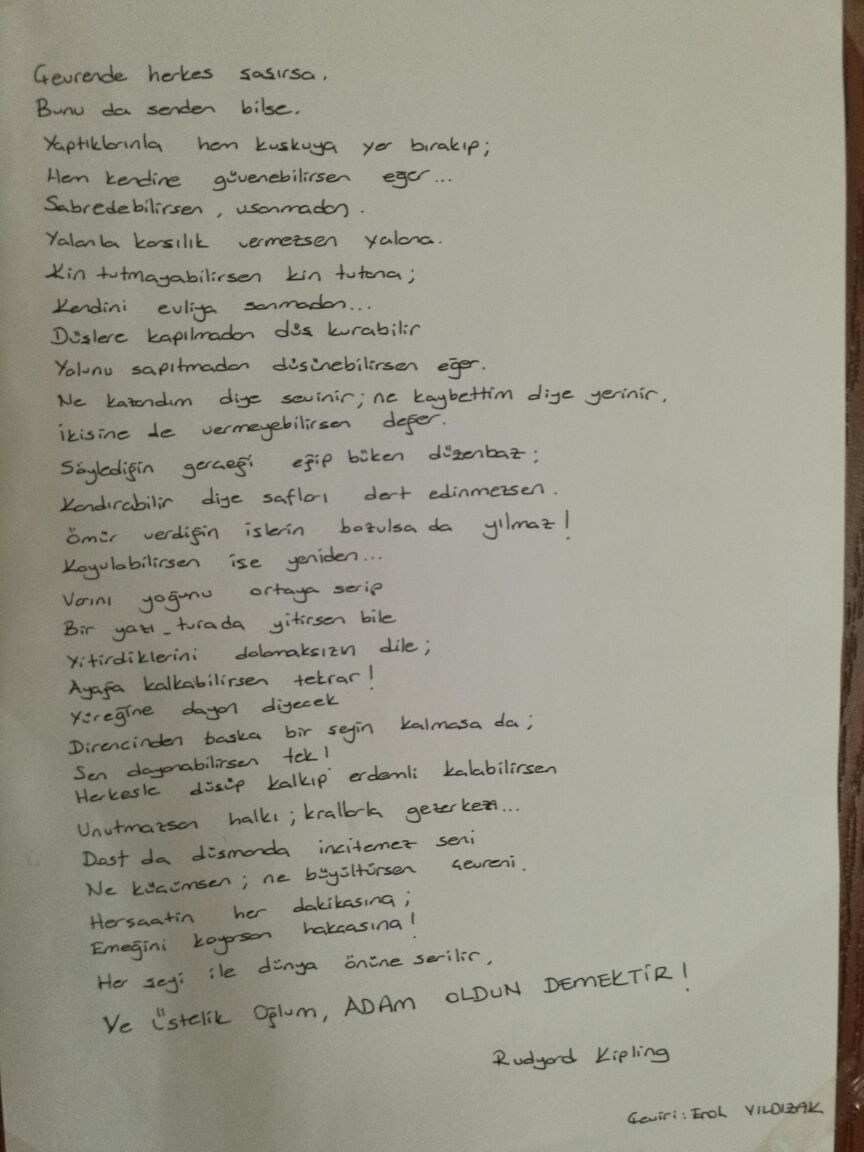 Çevrende herkes şaşırsa,
Bunu da senden bilse.
Yaptıklarınla hem kuşkuya yer bırakıp;
Hem kendine güvenebilirsen eğer...
Sabredebilirsen, usanmadan.
Yalanla karşılık vermezsen yalana.
Kin tutmayabilirsen kin tutana;
Kendini evliya sanmadan...
Düşlere kapılmadan düş kurabilir
Yolunu sapıtmadan düşünebilirsen eğer.
Ne kazandım diye sevinir; ne kaybettim diye yerinir,
İkisine de vermeyebilirsen değer.
Söylediğin gerçeği eğip büken düzenbaz;
Kandırabilir diye safları dert edinmezsen.
Ömür verdiğin işlerin bozulsa da yılmaz!
Koyulabilirsen işe yeniden...
Varını yoğunu ortaya serip
Bir yazı_turada yitirsen bile
Yitirdiklerini dolamaksızın dile;
Ayağa kalkabilirsen tekrar!
Yüreğine dayan diyecek
Direncinden başka bir şeyin kalmasa da;
Sen dayanabilirsen tek!
Herkesle düşüp kalkıp erdemli kalabilirsen
Unutmazsan halkı; krallarla gezerken...
Dost da düşmanda incitemez seni
Ne küçümsen; ne büyültürsen çevreni.
Hersaatin her dakikasına;
Emeğini koyarsan hakçasına!
Her şeyi ile dünya önüne serilir,
Ve üstelik Oğlum, ADAM OLDUN DEMEKTİR!
Rudyard Kipling
Çeviri: Erol YILDIZAK